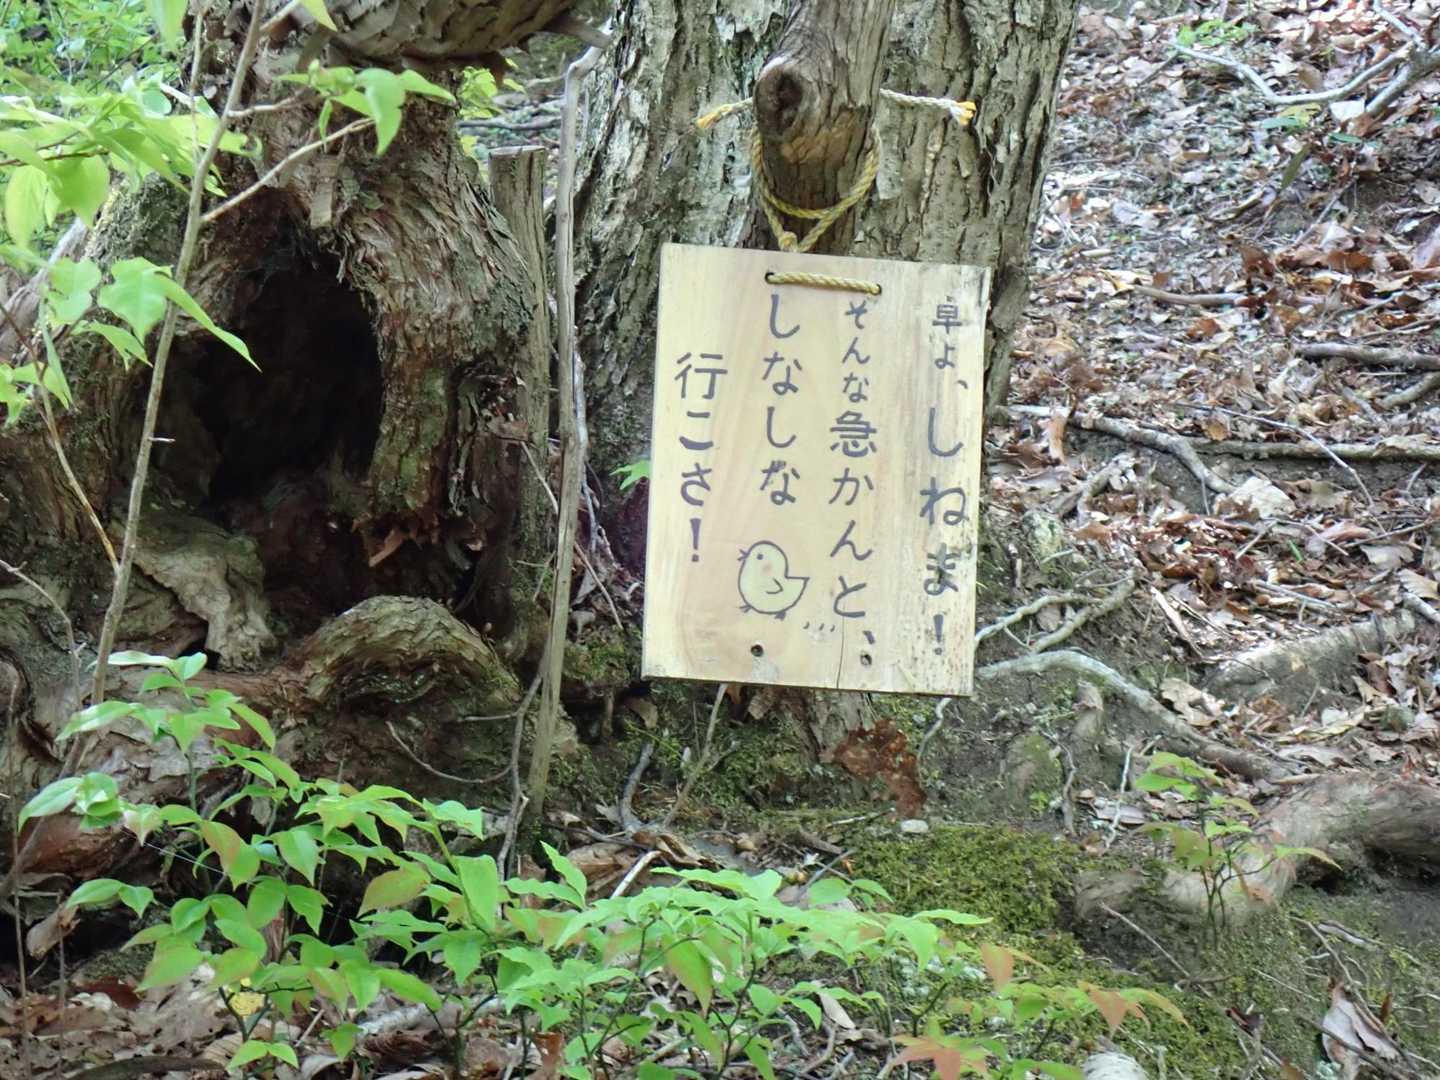 卓よ、しねま!
そんな急かんと、
しなしな
行こさ!